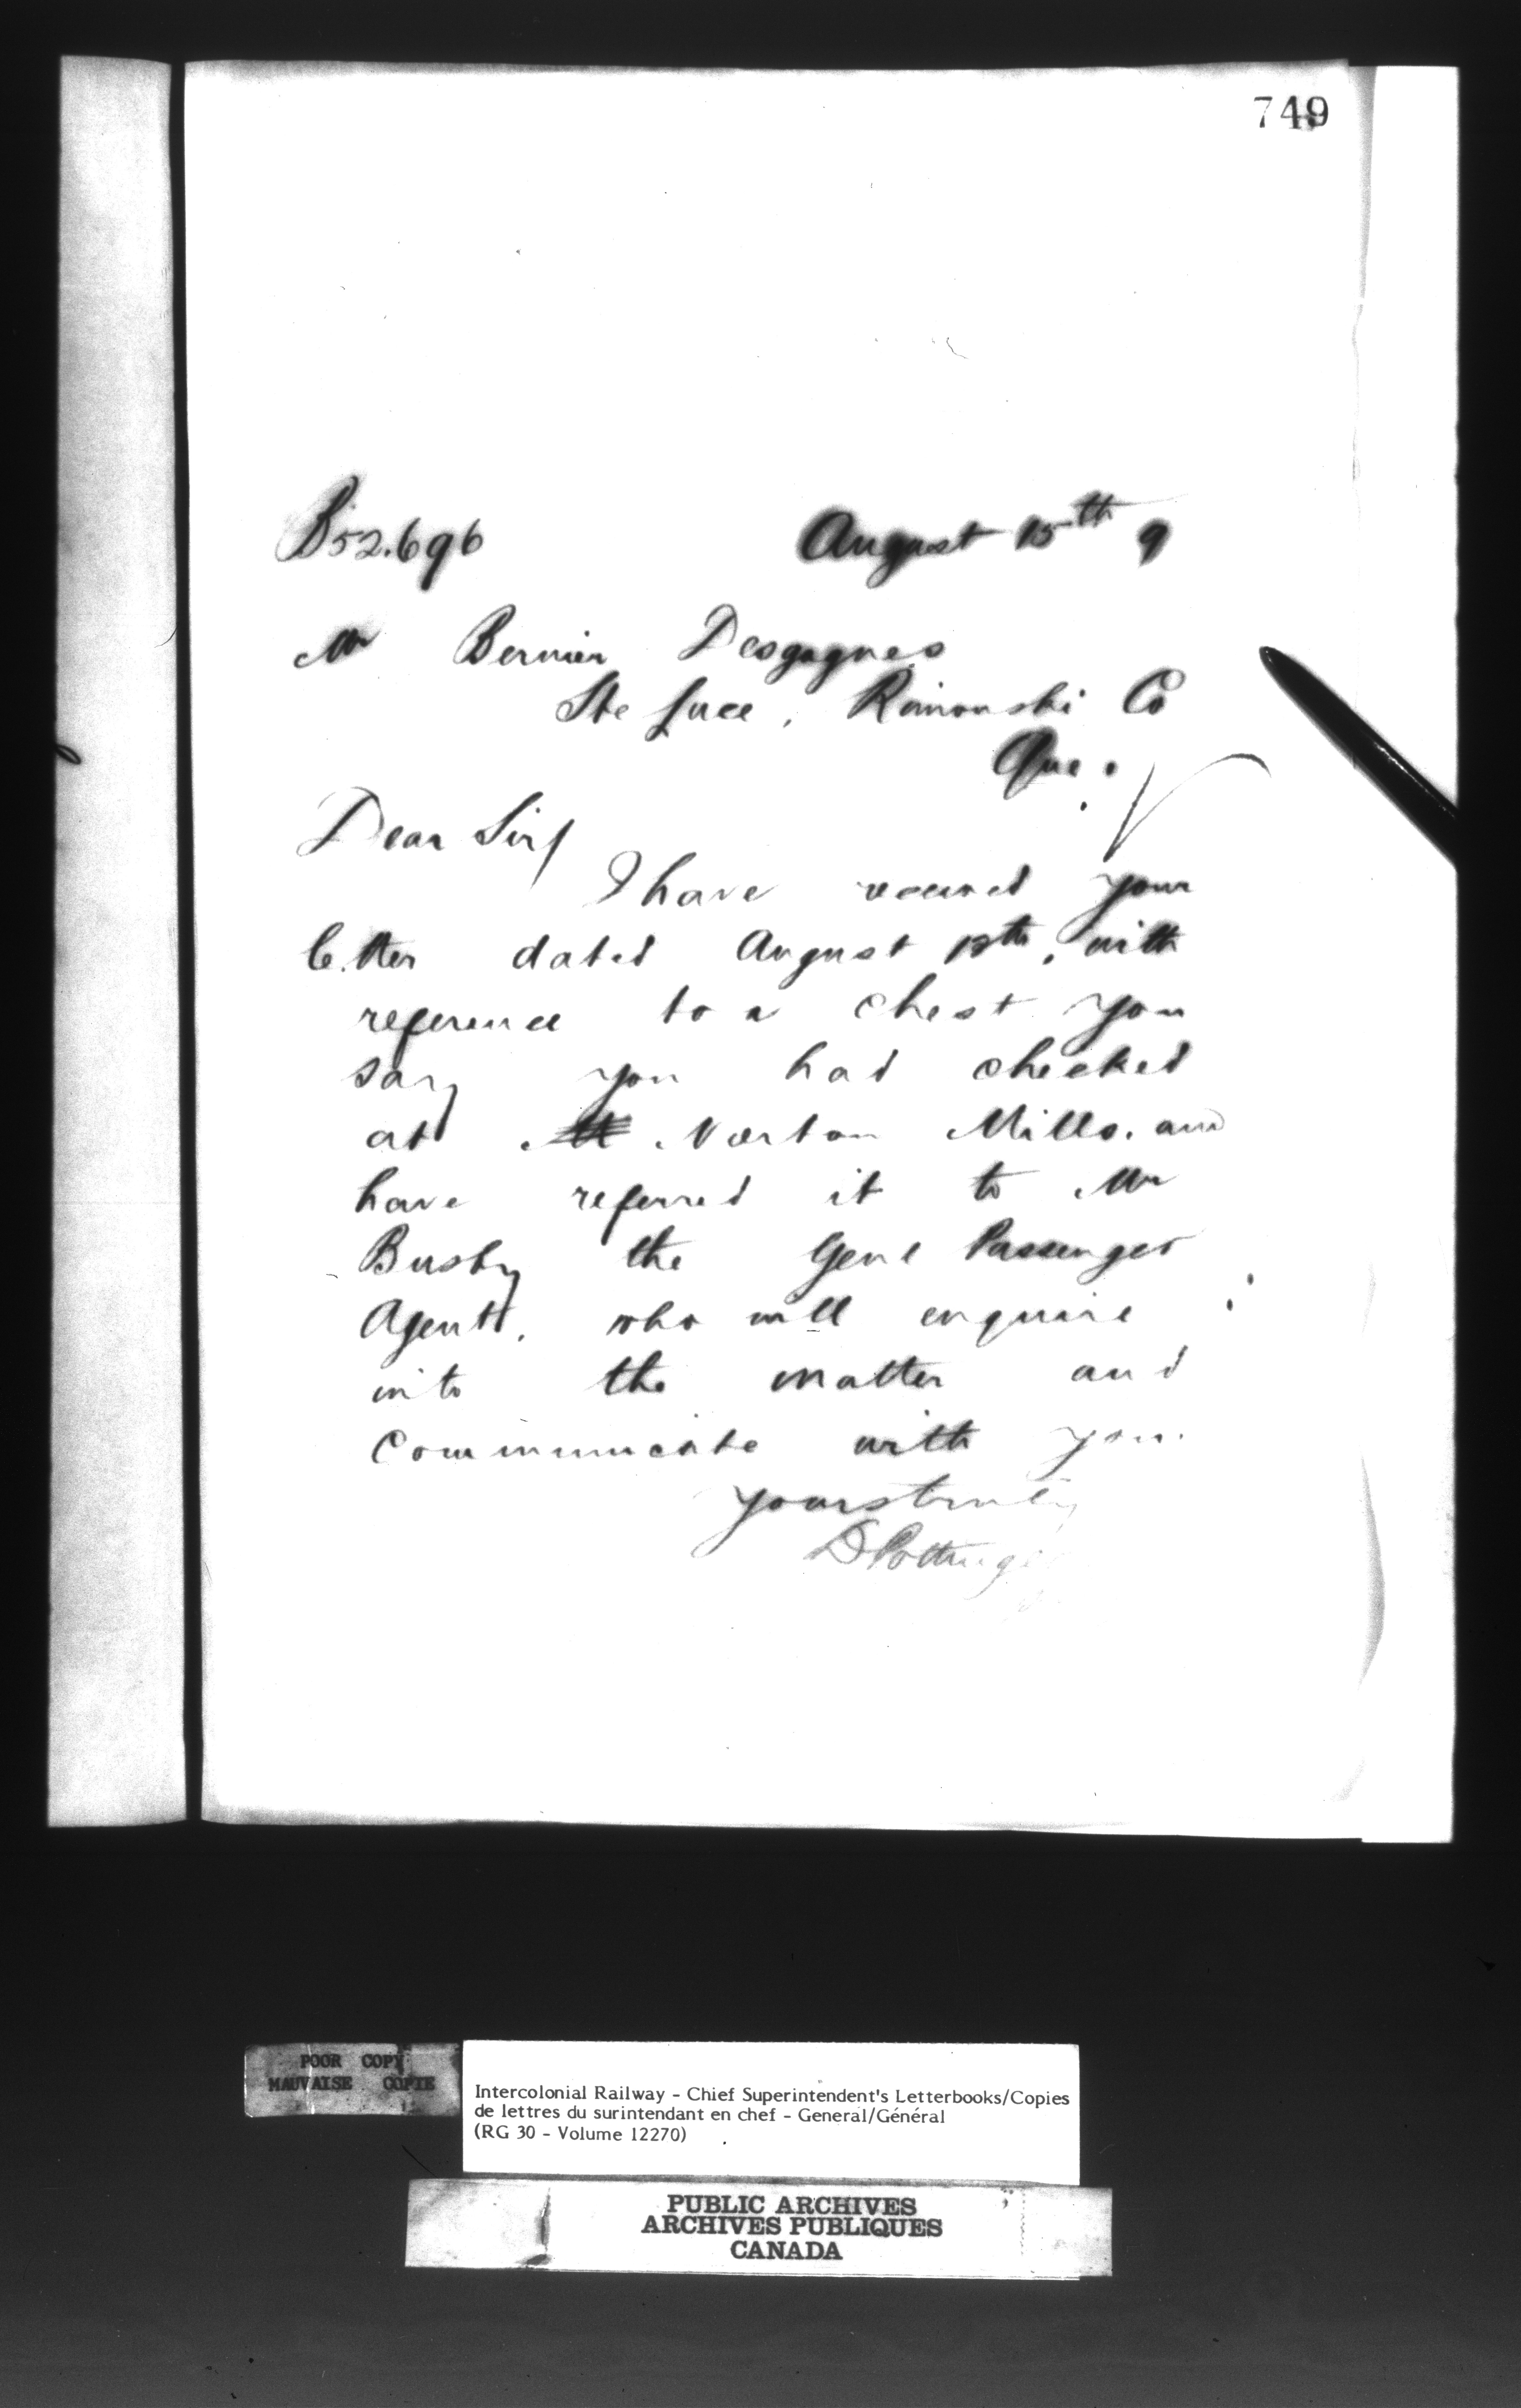 749
B52.696 August 15th 9
Mr Bernier Desgagnes
Ste Luce, Rimouski Co
Que.
Dear Sir/
I have received your
letter dated August 13th, with
reference to a chest you
say you had checked
at Norton Mills. and
have referred it to Mr
Busby the Genl Passenger
Agent, who will enquire
into the matter and
communicate with you.
Yours truly
D Pottinger
POOR COPY
MAUVAISE COPIE
Intercolonial Railway - Chief Superintendent's Letterbooks/Copies
de lettres du surintendant en chef - General/Général
(RG 30 - Volume 12270)
PUBLIC ARCHIVES
ARCHIVES PUBLIQUES
CANADA